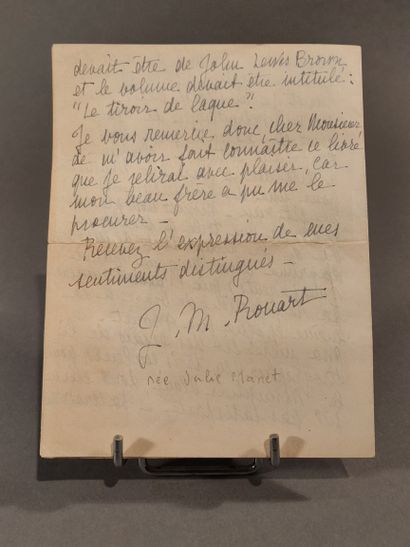 devait être de John Lewis Brown
et le volume devait être intitulé :
"Le tiroir de laque".
Je vous remercie donc, cher Monsieur
de m'avoir fait connaître ce livre
que je relirai avec plaisir, car
mon beau frère a pu me le
procurer —
Recevez l'expression de mes
sentiments distingués —
J. M. Rouart
née Julie Manet